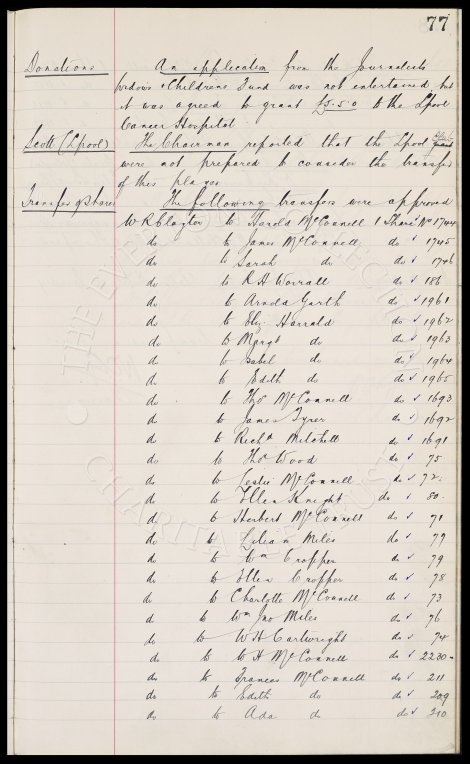 77
Donations An application from the Journalists
Widows & Childrens Fund was not entertained but
it was agreed to grant £5.5.0 to the Lpool
Cancer Hospital
Scott (Lpool) The Chairman reported that the Lpool Club
were not prepared to consider the transfer
of this player
Transfer of Shares The following transfers were approved
W R Clayton to Harold McConnell 1 Share No 1744
do to James McConnell do 1745
do to Sarah do do 1746
do to R H Worrall do 186
do to Arnold Garth do 1961
do to Eliz. Harrald do 1962
do to Margt do do 1963
do to Isabel do do 1964
do to Edith do do 1965
do to Thos McConnell do 1693
do to James Tyrer do 1692
do to Richd Mitchell do 1691
do to Thos Wood do 75
do to Leslie McConnell do 72
do to Ellen Knight do 80
do to Herbert McConnell do 71
do to Lilian Miles do 77
do to Wm Cropper do 79
do to Ellen Cropper do 78
do to Charlotte McConnell do 73
do to Wm Jno Miles do 76
do to W H Cartwright do 74
do to W H McConnell do 2230
do to Frances McConnell do 211
do to Edith do do 209
do to Ada do do 210
THE EVERTON COLLECTION
CHARITABLE TRUST